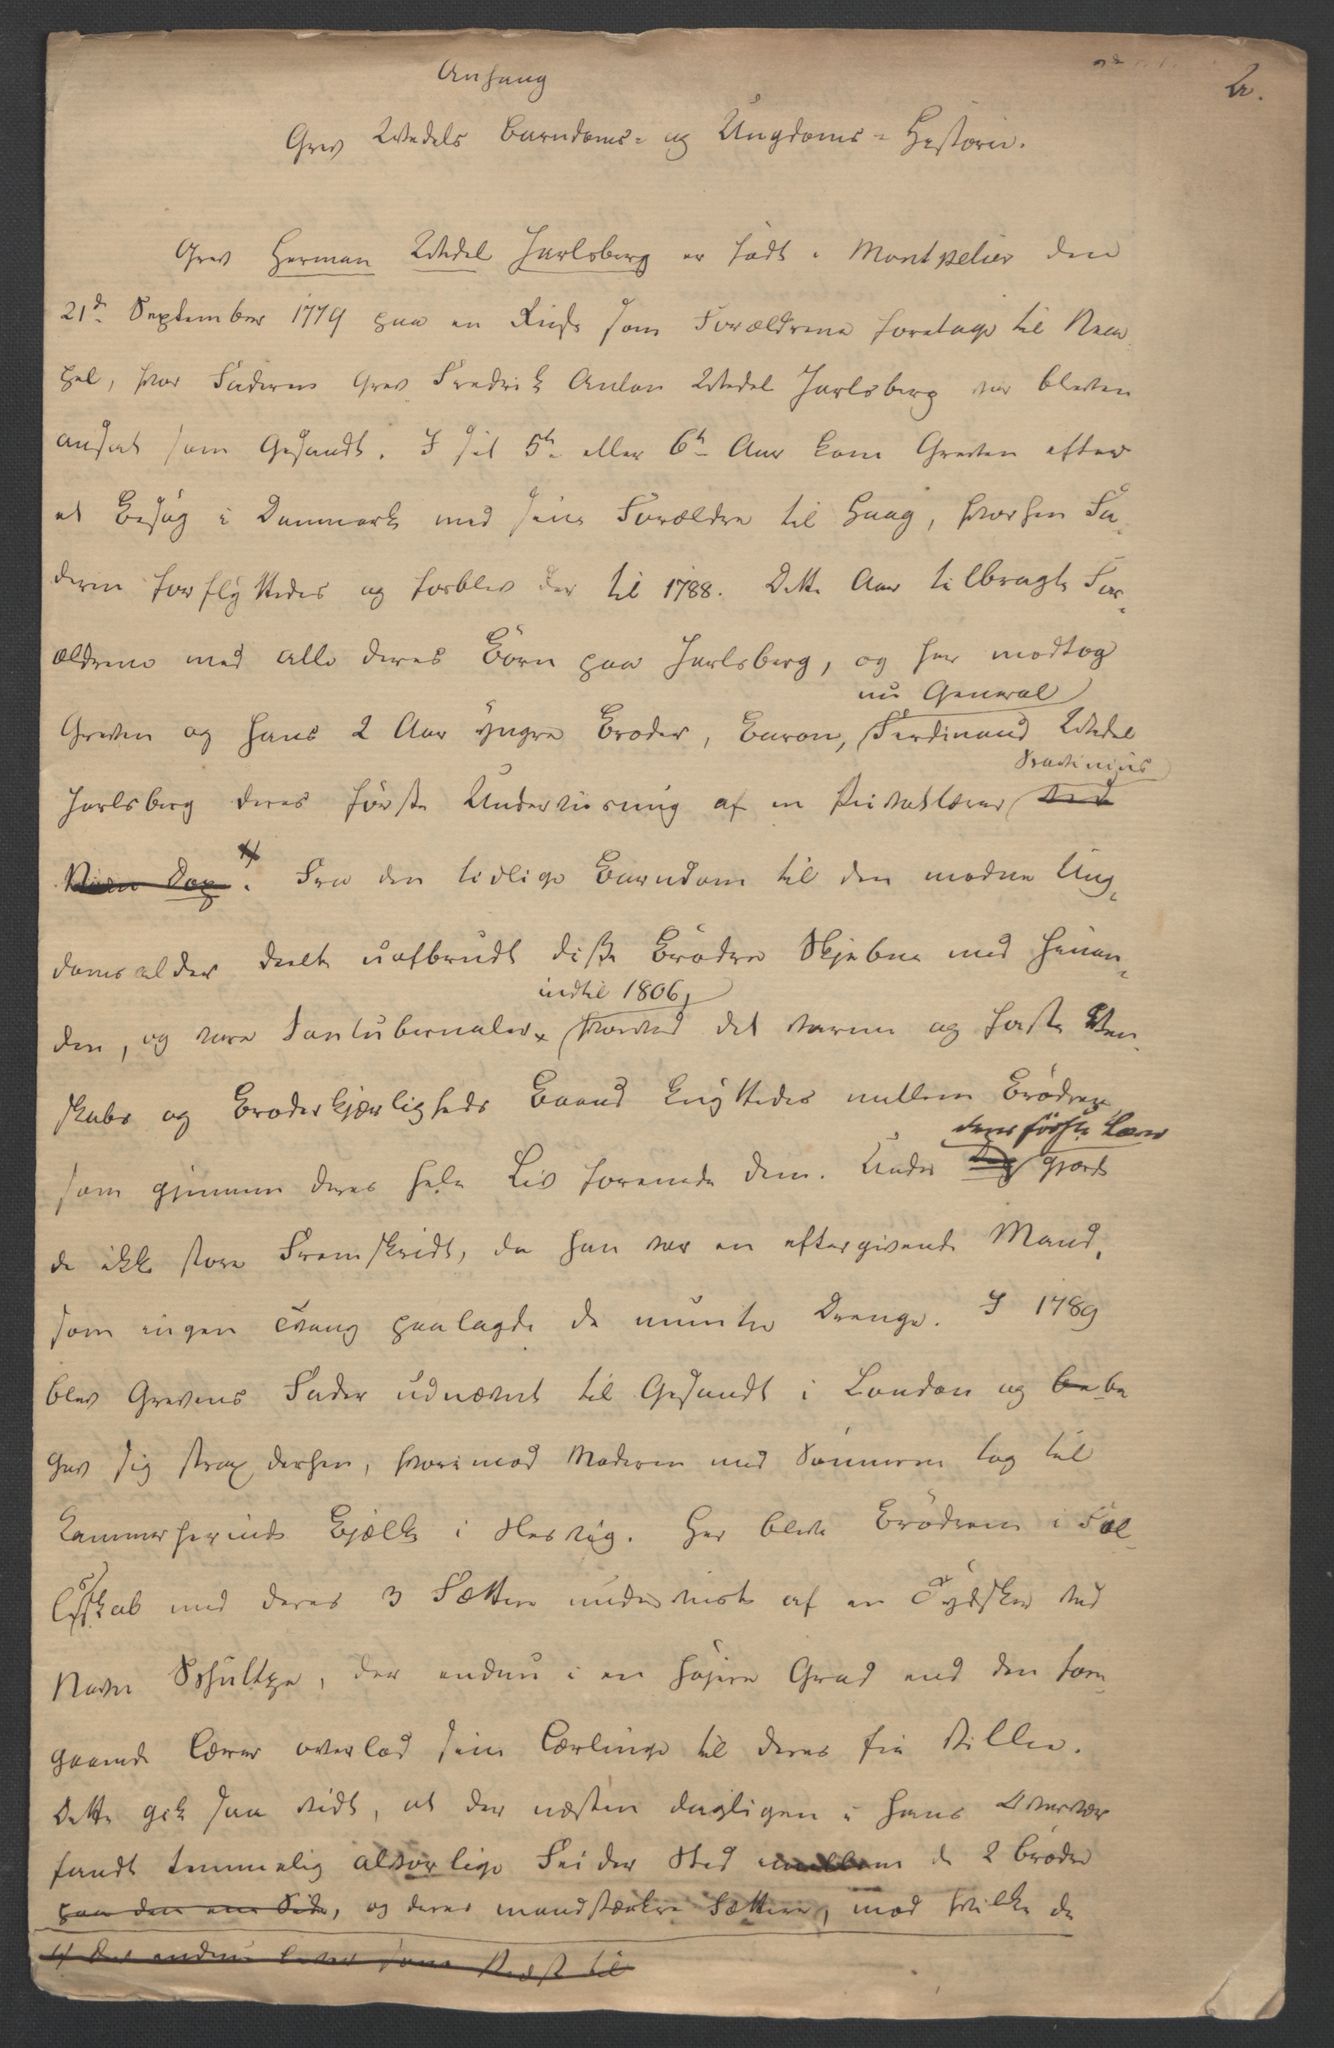 Anhang
2.
Grev Wedels Barndoms- og Ungdoms-Historie.
Grev Herman Wedel Jarlsberg er född i Montpelier den
21de September 1779 paa en Reise som Forældrene foretoge til Nea-
pel, hvor Faderen Grev Fredrik Anton Wedel Jarlsberg var bleven
ansat som Gesandt. I sit 5te eller 6te Aar kom Greven efter
et Besøg i Danmark med sine Forældre til Haag, hvorhen Fa-
deren forflyttedes og forblev der til 1788. Dette Aar tilbragte For-
ældrene med alle deres Börn paa Jarlsberg, og her modtog
nu General
Greven og hans 2 Aar yngre Broder, Baron, Ferdinand Wedel
Jarlsberg deres förste Underviisning af en Privatlærer ved
Navn Dop. Fra den tidlige Barndom til den modne Ung-
domsalder deelte uafbrudt disse Brödre Skjebne med hinan-
indtil 1806,
den, og vare Contubernaler, hvorved det varme og faste Ven-
skabs og Broderkjærligheds Baand knyttedes mellem Brödrene
deres förste Lærer
som gjennem deres hele Liv forenede dem. Under gjorde
de ikke store Fremskridt, da han var en eftergivende Mand,
som ingen Tvang paalagde de muntre Drenge. I 1789
blev Grevens Fader udnævnt til Gesandt i London og be be
gav sig strax derhen, hvorimod Moderen med Sönnerne tog til
Kammerherinde Bjælke i Slesvig. Her bleve Brödrene i Sel-
lskab med deres 3 Fættere underviiste af en Tydsker ved
Navn Schultze, der endnu i en höjere Grad end den fore-
gaaende Lærer overlod sine Lærlinge til deres frie Villie.
Dette gik saa vidt, at der næsten dagligen i hans Overvær
fandt temmelig alvorlige Feider Sted mellem de 2 Brödre
paa den ene Side, og deres mandstærkere Fættere, mod hvilke de